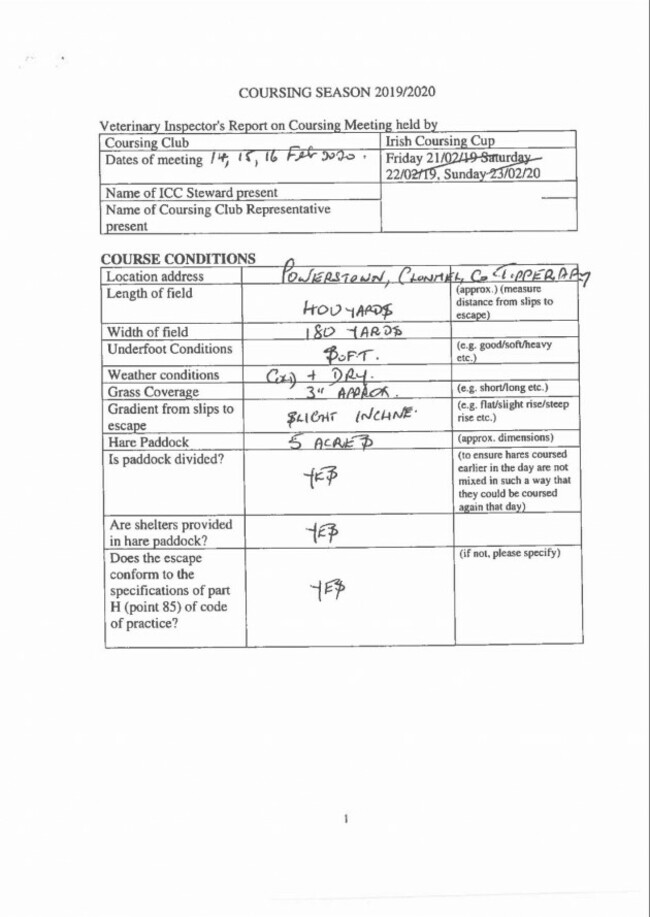 COURSING SEASON 2019/2020
Veterinary Inspector's Report on Coursing Meeting held by
Coursing Club
Irish Coursing Cup
Dates of meeting 14, 15, 16 Feb 2020.
Friday 21/02/19 Saturday
22/02/19, Sunday 23/02/20
Name of ICC Steward present
Name of Coursing Club Representative
present
COURSE CONDITIONS
Location address
POWERSTOWN, CLONMEL, Co TIPPERARY
Length of field
400 YARDS
(approx.) (measure
distance from slips to
escape)
Width of field
180 YARDS
Underfoot Conditions
SOFT.
(e.g. good/soft/heavy
etc.)
Weather conditions
+ DRY.
Grass Coverage
3" APPROX.
(e.g. short/long etc.)
Gradient from slips to
escape
SLIGHT INCLINE.
(e.g. flat/slight rise/steep
rise etc.)
Hare Paddock
5 ACRES
(approx. dimensions)
Is paddock divided?
YES
(to ensure hares coursed
earlier in the day are not
mixed in such a way that
they could be coursed
again that day)
Are shelters provided
in hare paddock?
YES
Does the escape
conform to the
specifications of part
H (point 85) of code
of practice?
YES
(if not, please specify)
1